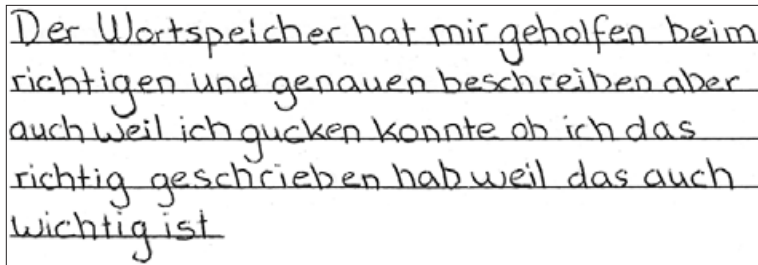 Der Wortspeicher hat mir geholfen beim
richtigen und genauen beschreiben aber
auch weil ich gucken konnte ob ich das
richtig geschrieben hab weil das auch
wichtig ist